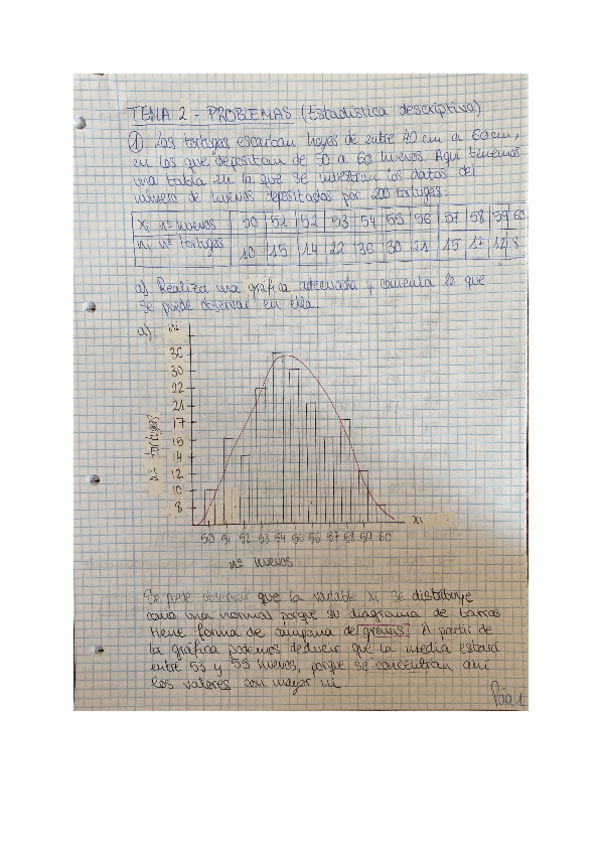 TEMA 2 - PROBLEMAS (Estadística descriptiva)
① Las tortugas escarban hoyos de entre 40 cm a 60 cm,
en los que depositan de 50 a 60 huevos. Aquí tenemos
una tabla en la que se muestran los datos del
número de huevos depositados por 200 tortugas:
xi nº huevos 50 51 52 53 54 55 56 57 58 59 60
ni nº tortugas 10 15 14 22 36 30 21 15 17 12 8
a) Realiza una gráfica adecuada y comenta lo que
se puede observar en ella.
a) ni
36
30
22
21
17
15
14
12
10
8
nº tortugas
50 51 52 53 54 55 56 57 58 59 60
xi
nº huevos
Se puede observar que la variable xi se distribuye
como una normal porque su diagrama de barras
tiene forma de campana de grauss. A partir de
la gráfica podemos deducir que la media estará
entre 53 y 55 huevos, porque se concentran ahí
los valores con mayor ni.
Pág 1